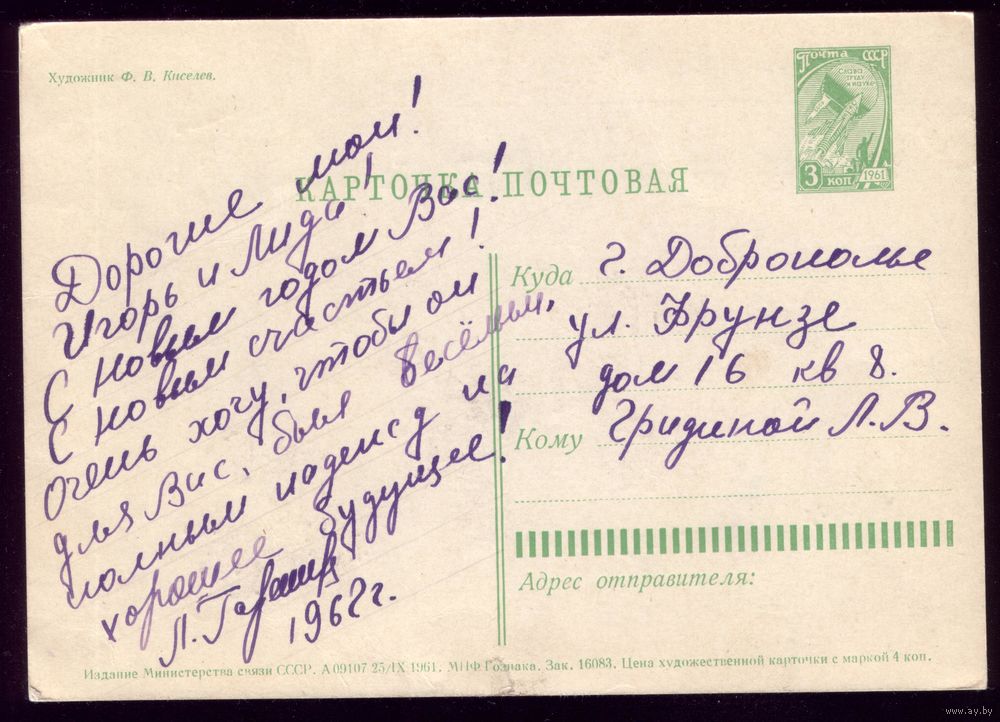 Художник Ф. В. Киселев.
Почта СССР
СЛАВА ТРУДУ И НАУКЕ
3 КОП 1961
КАРТОЧКА ПОЧТОВАЯ
Дорогие мои!
Игорь и Лида!
С Новым годом Вас!
С новым счастьем!
Очень хочу, чтобы он
для Вас, был весёлым,
полным надежд на
хорошее будущее!
Л.
1962 г.
Куда г. Доброполье
ул. Фрунзе
дом 16 кв 8.
Кому Гридиной Л.В.
Адрес отправителя:
Издание Министерства связи СССР. А 09107 25/IX 1961. МПФ Гознака. Зак. 16083. Цена художественной карточки с маркой 4 коп.
www.ay.by